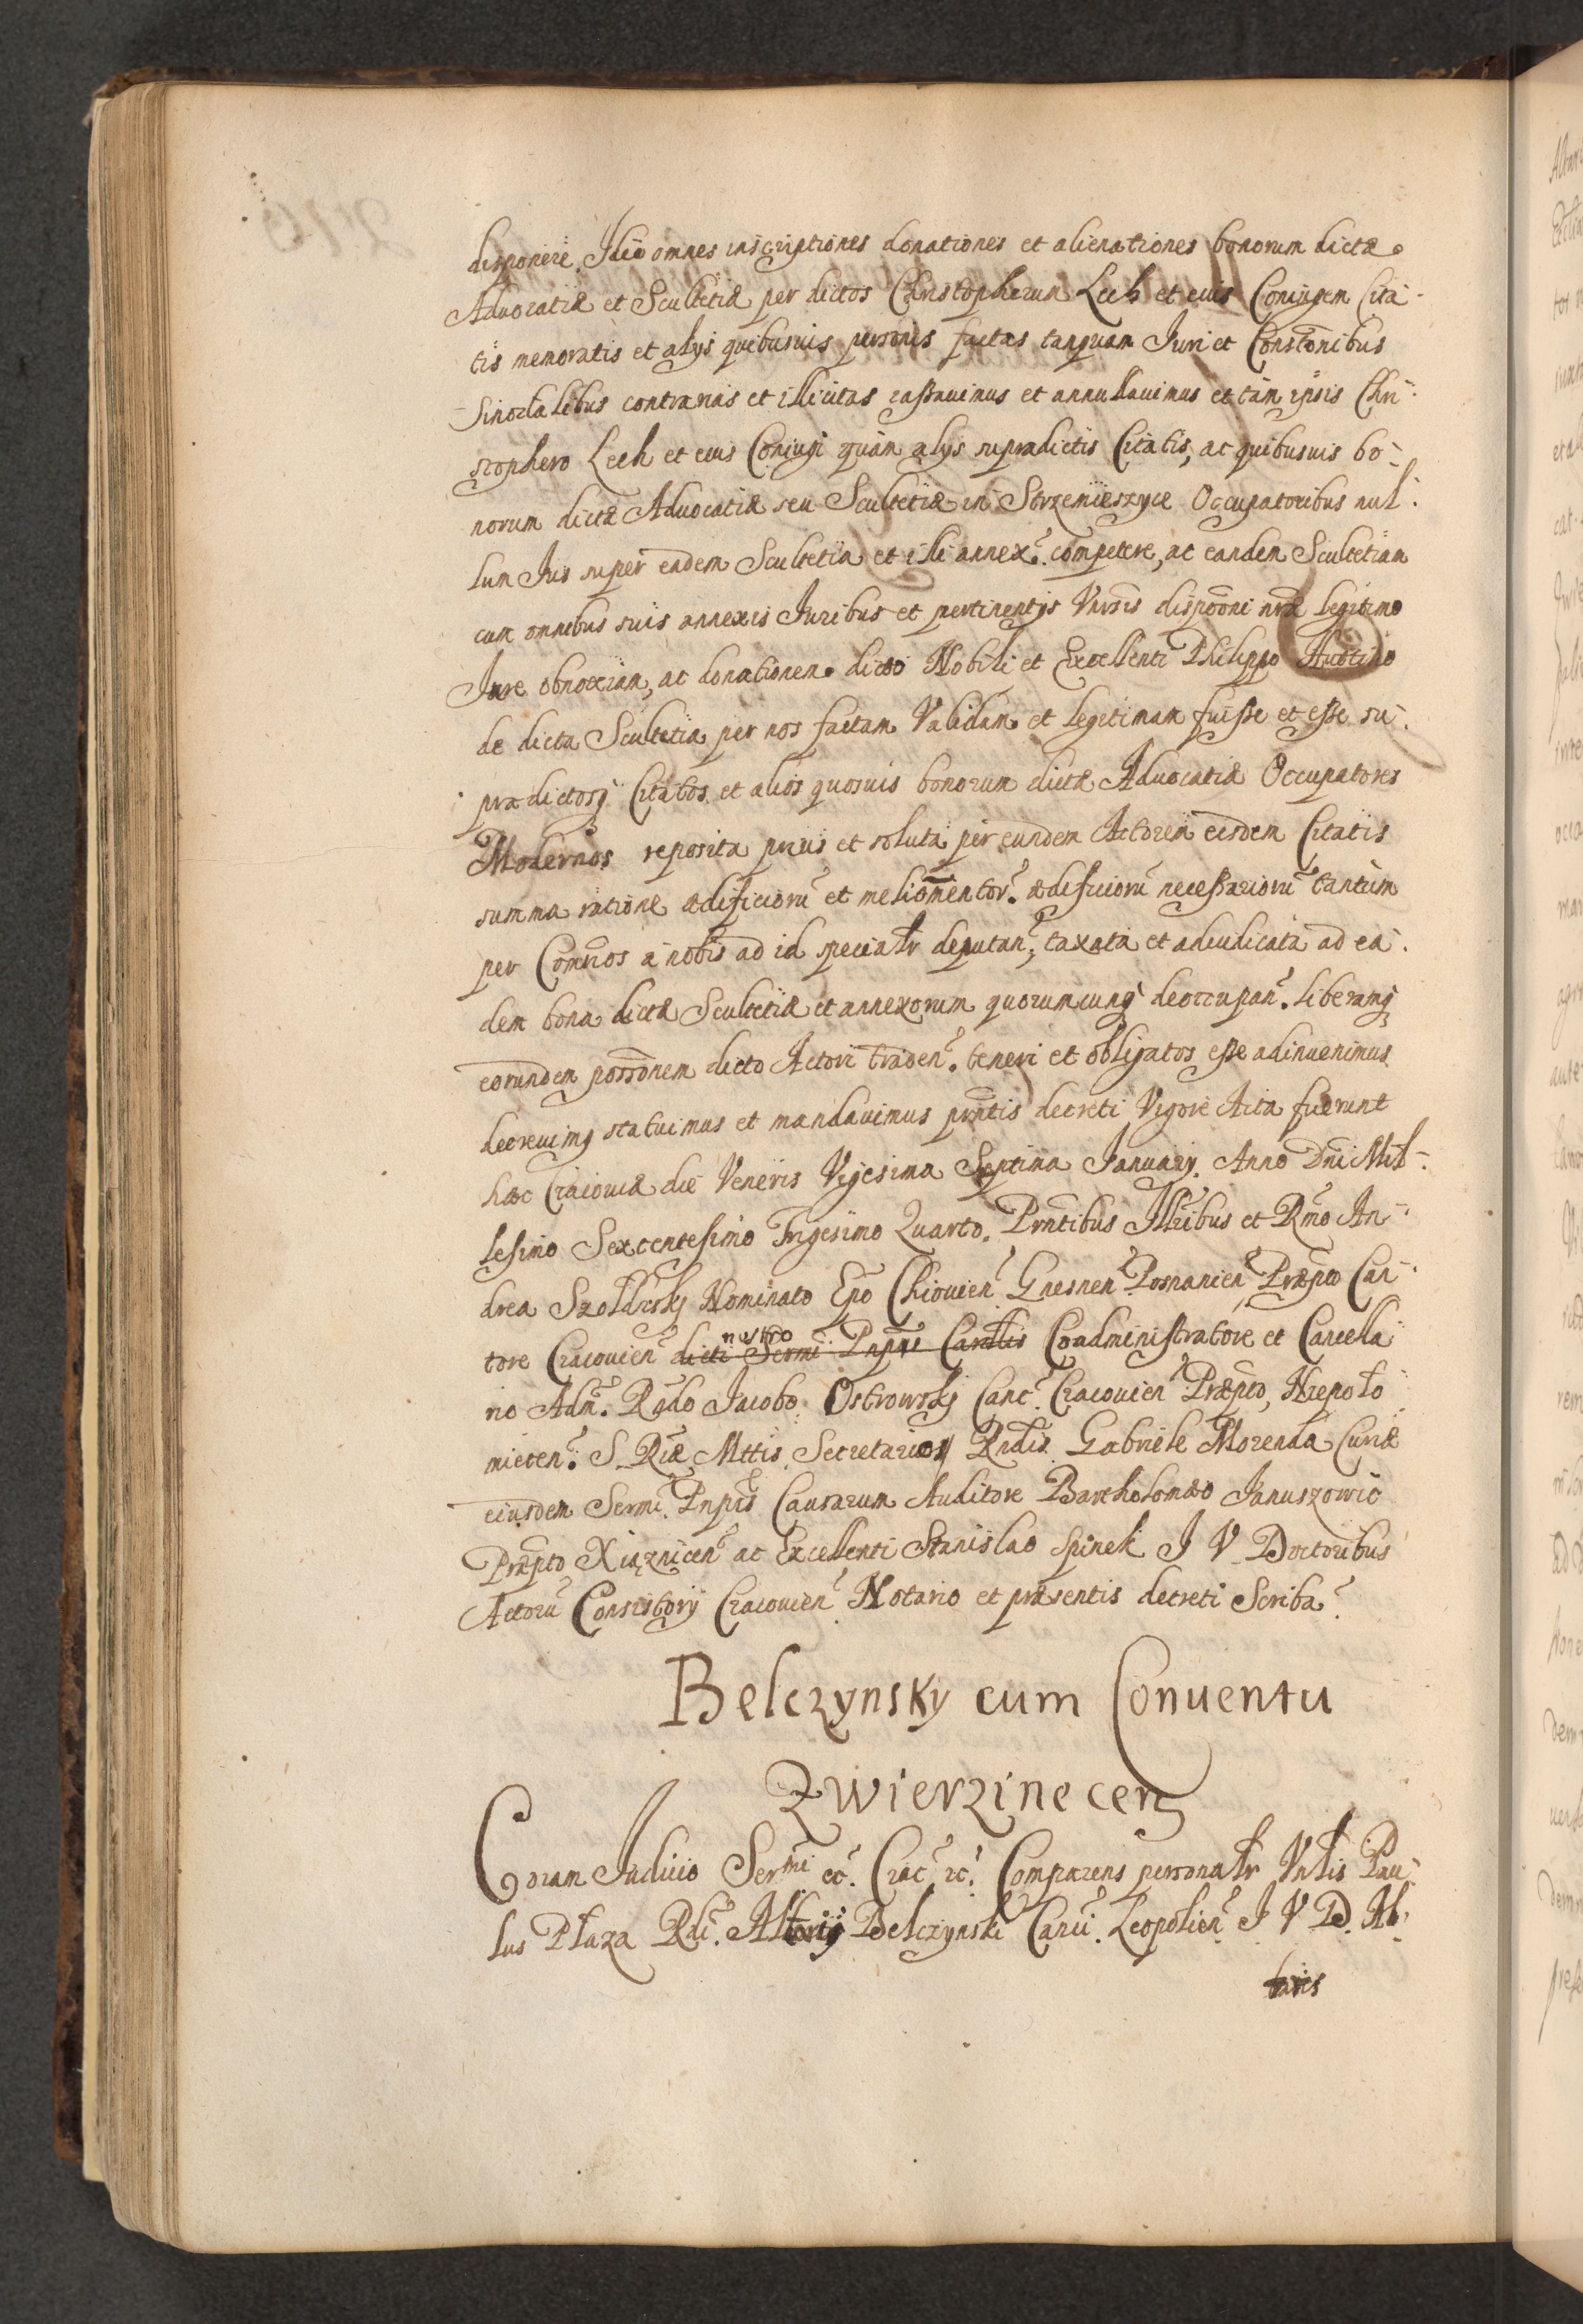 disponere. Ideo omnes inscriptiones donationes et alienationes bonorum dictæ
Aduocatiæ et Scultetiæ per dictos Christopherum Lech et eius Coniugem Cita-
tis memoratis et alys quibusuis personis factas tanquam Juri et Constōnibus
Sinodalibus contrarias et illicitas cassauimus et annullauimus et tàm ipsis Chri-
stophero Lech et eius Coniugi quàm alys supradictis Citatis, ac quibusuis bo-
norum dictæ Aduocatiæ seu Scultetiæ in Strzemieszyce Occupatoribus nul-
lum Jus super eadem Scultetia et illi annex. competere, ac eandem Scultetiam
cum omnibus suis annexis Juribus et pertinentys Vnrsis dispōni nræ legitimo
Jure obnoxiam, ac donationem dicto Nobili et Excellenti Philippo
de dicta Scultetia per nos factam Validam et legitimam fuisse et esse su-
prædictosq Citatos et alios quosuis bonorum dictæ Aduocatiæ Occupatores
Modernos reposita prius et soluta per eundem Actorem eisdem Citatis
summa ratione ædificiorũ et meliōmentor. ædificiorũ necessariorũ tantùm
per Commrios à nobis ad id speciatr deputan. taxata et adiudicata ad ea-
dem bona dictæ Scultetiæ et annexorum quorumcunq deoccupan. liberamq
eorundem possōnem dicto Actori traden. teneri et obligatos esse adinuenimus
decreuimq statuimus et mandauimus prntis decreti Vigore Acta fuerunt
hæc Cracouiæ die Veneris Vigesima Septima January. Anno Dni Mil-
lesimo Sexcentesimo Trigesimo Quarto. Prntibus Illribus et Rmo An-
drea Szołdrsky Nominato Epo Chiouien. Gnesnen. Posnanien, Præpto Can-
tore Cracouien dicti Sermi Pnpis Cardlis nostro Coadministratore et Cancella-
rio Adm. Rndo Jacobo Ostrowsky Canc. Cracouien Præpto, Niepoło-
micen. S. Riæ Mttis Secretario Rndis Gabriele Morenda Curiæ
eiusdem Sermi Pnpis Causarum Auditore Bartholomæo Januszowic
Præpto Xiąznicen ac Excellenti Stanislao Spinek J V Doctoribus
Actorũ Consistory Cracouien Notario et præsentis decreti Scriba.
Belczynsky cum Conuentu
Zwierzinecen
Coram Judicio Sermi ec. Crac ec. Comparens personatr Vntis Pau-
lus Płaza Rdi. Belczynski Canci. Leopolien J V D. Al-
taris